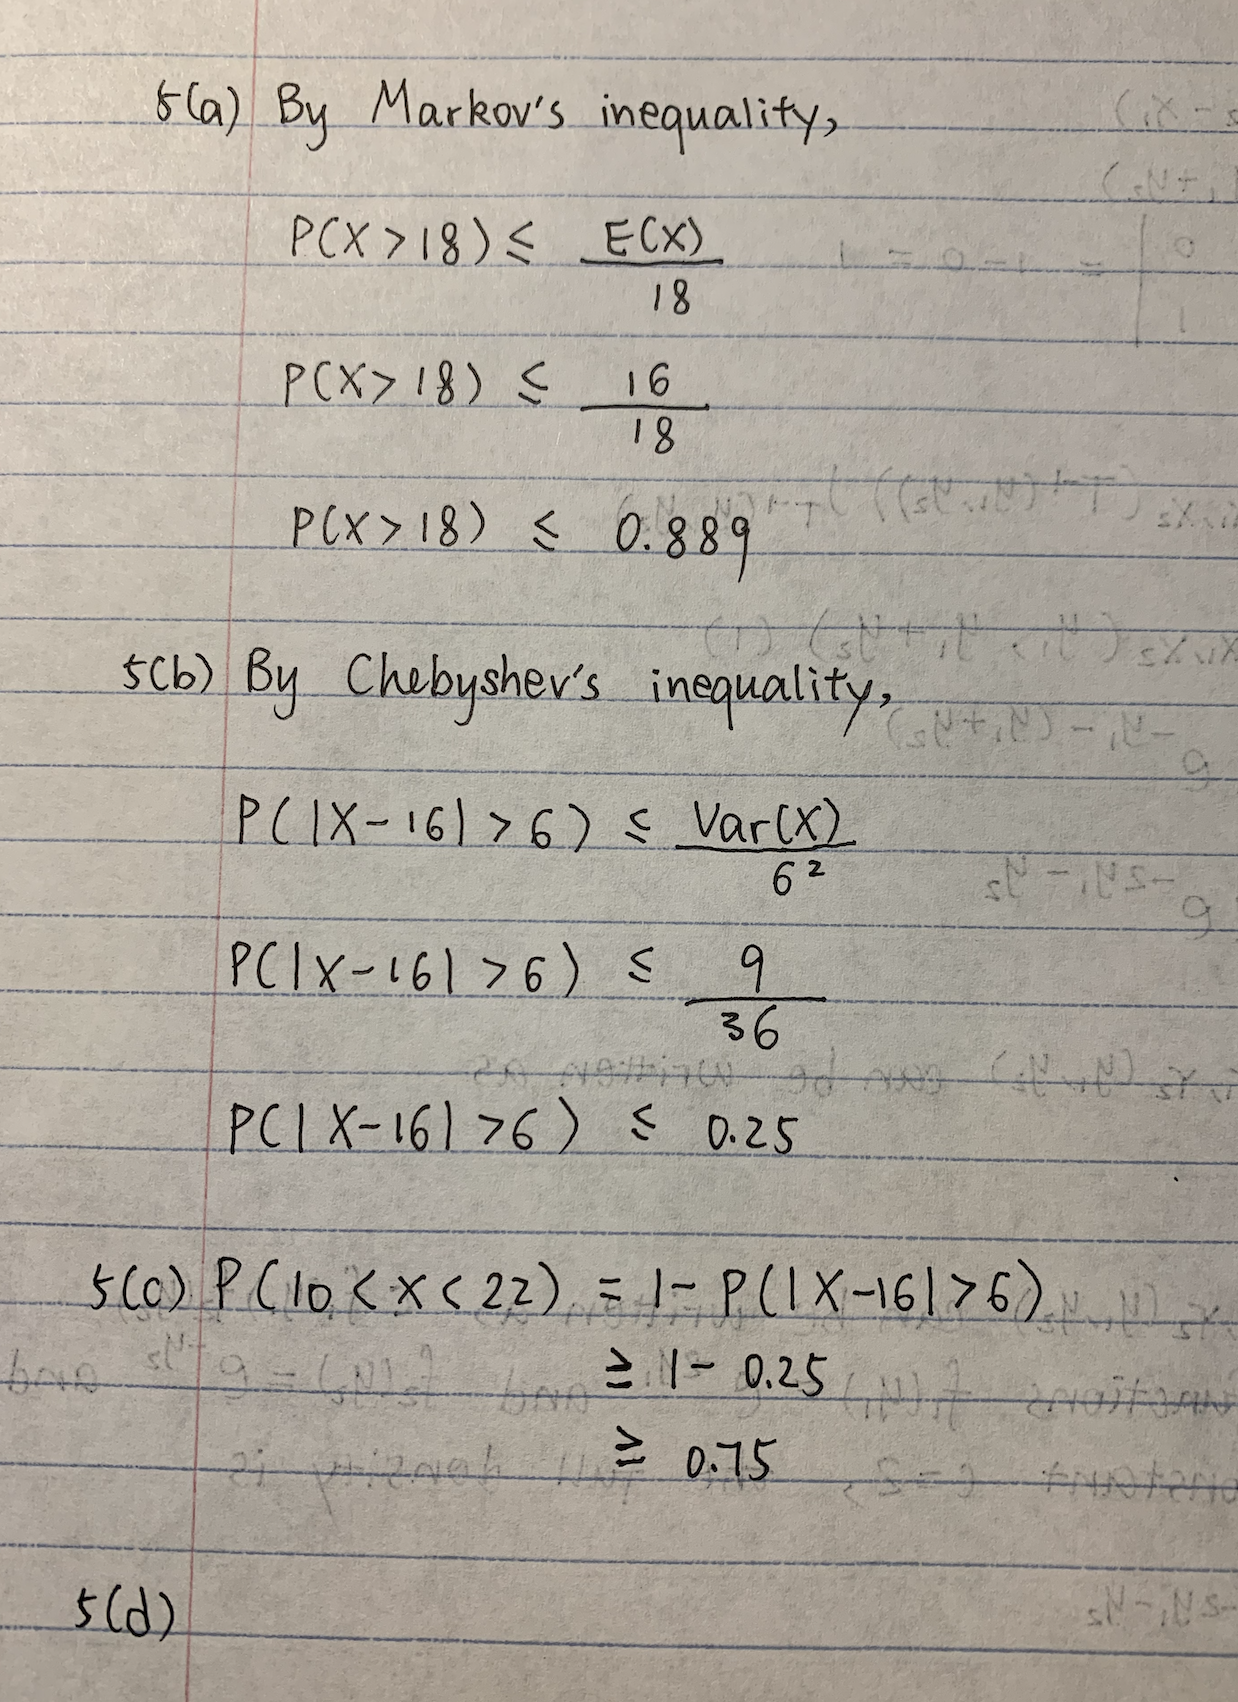 5(a) By Markov's inequality,
P(X > 18) ≤ E(X)
18
P(X > 18) ≤ 16
18
P(X > 18) ≤ 0.889
5(b) By Chebyshev's inequality,
P(|X-16| > 6) ≤ Var(X)
6²
P(|X-16| > 6) ≤ 9
36
P(|X-16| > 6) ≤ 0.25
5(c) P(10 < X < 22) = 1- P(|X-16| > 6)
≥ 1- 0.25
≥ 0.75
5(d)